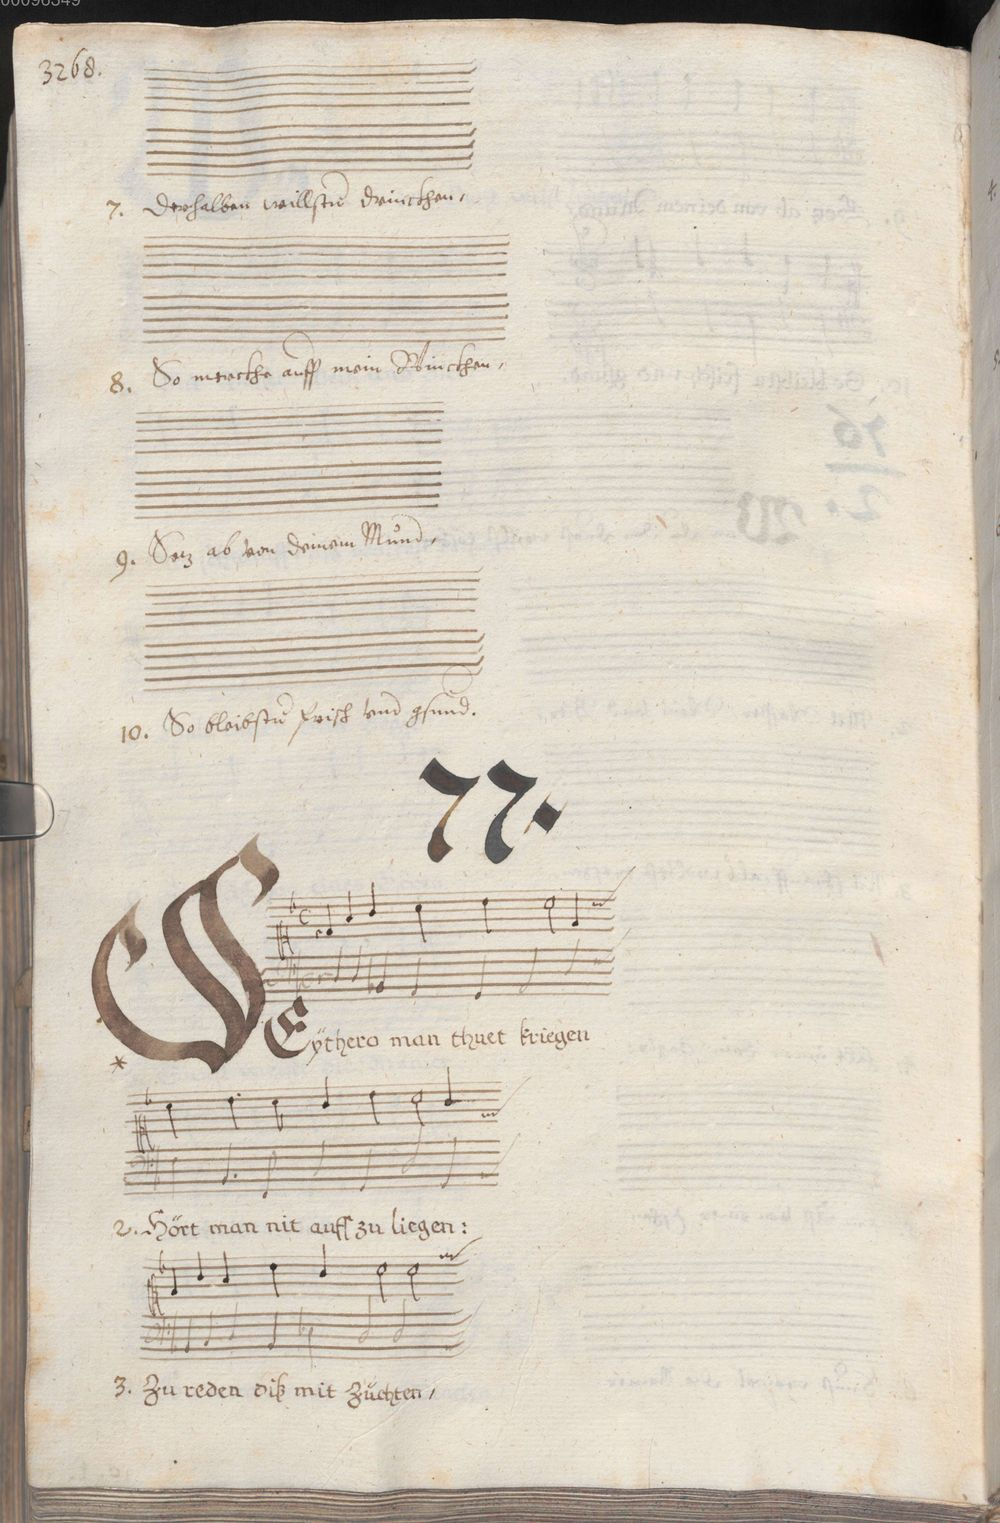 00096549
3268.
7. Derhalben willstu drinckhen,
8. So merckhe auff mein Winckhen,
9. Setz ab von deinem Mund,
10. So bleibstu frisch vnd gsund.
77.
SEythero man thuet kriegen
2. Hört man nit auff zu liegen:
3. Zu reden diß mit Züchten,